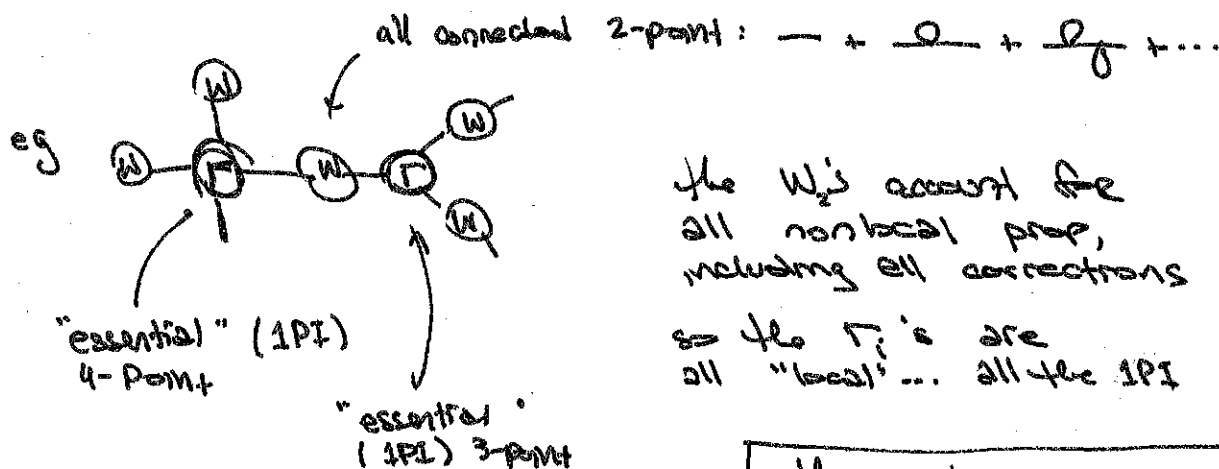 all connected 2-point: — + + + ...
eg
W
W
Γ
W
Γ
W
W
the W₂'s account for
all nonlocal prop,
including all corrections
so the Γᵢ's are
all "local"... all the 1PI
"essential" (1PI)
4-Point
"essential"
(1PI) 3-point